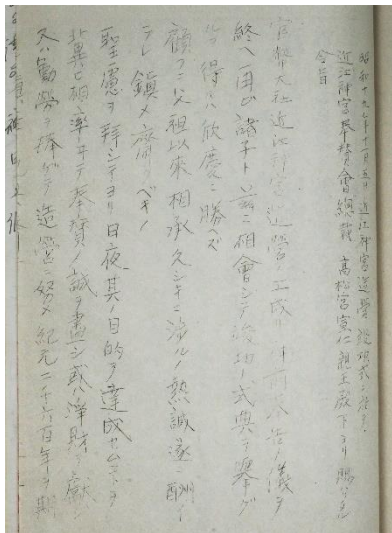 昭和十九年十一月五日近江神宮造營竣功式ニ於テ
近江神宮奉賛會總裁 高松宮宣仁親王殿下ヨリ賜ハリタル
令旨
官幣大社近江神宮造營ノ工成リ神前奉告ノ儀ヲ
終ヘ一同諸子ト茲ニ相會シテ竣功ノ式典ヲ擧グ
ルヲ得ルハ欣慶ニ勝ヘズ
顧フニ父祖以來相承久シキニ渉ルノ熱誠遂ニ酬ハ
レ鎮メ齋ルベキノ
聖慮ヲ拜シテヨリ日夜其ノ目的ヲ達成セムコトヲ
冀ヒ相率ヰテ奉賛ノ誠ヲ盡シ或ハ浄財ヲ獻
又ハ勤勞ヲ捧ゲテ造營ニ努メ紀元二千六百年ヲ期